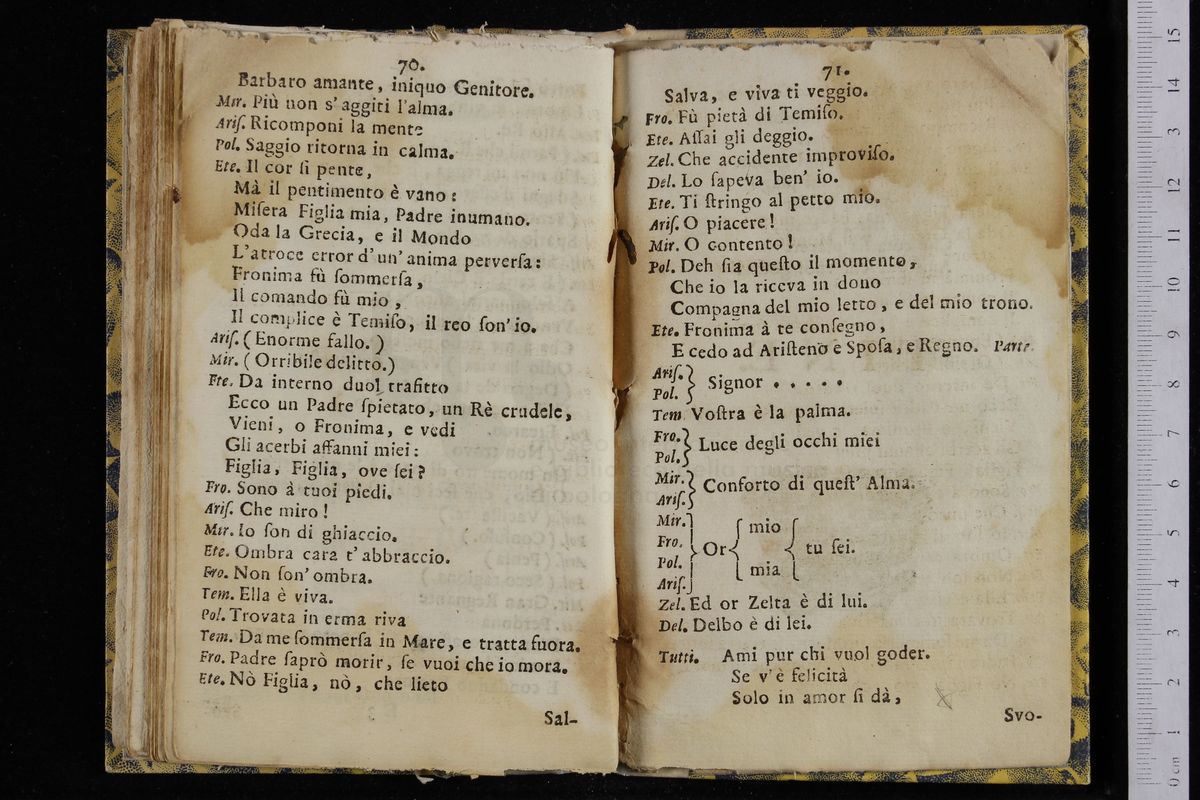 70.
Barbaro amante, iniquo Genitore.
Mir. Più non s'aggiti l'alma.
Ariſ. Ricomponi la mente
Pol. Saggio ritorna in calma.
Ete. Il cor ſi pente,
Mà il pentimento è vano:
Miſera Figlia mia, Padre inumano.
Oda la Grecia, e il Mondo
L'atroce error d'un'anima perverſa:
Fronima fù ſommerſa,
Il comando fù mio,
Il complice è Temiſo, il reo ſon'io.
Ariſ. (Enorme fallo.)
Mir. (Orribile delitto.)
Ete. Da interno duol trafitto
Ecco un Padre ſpietato, un Rè crudele,
Vieni, o Fronima, e vedi
Gli acerbi affanni miei:
Figlia, Figlia, ove ſei?
Fro. Sono à tuoi piedi.
Ariſ. Che miro!
Mir. Io ſon di ghiaccio.
Ete. Ombra cara t'abbraccio.
Fro. Non ſon'ombra.
Tem. Ella è viva.
Pol. Trovata in erma riva
Tem. Da me ſommerſa in Mare, e tratta fuora.
Fro. Padre ſaprò morir, ſe vuoi che io mora.
Ete. Nò Figlia, nò, che lieto
Sal-
71.
Salva, e viva ti veggio.
Fro. Fù pietà di Temiſo.
Ete. Aſſai gli deggio.
Zel. Che accidente improviſo.
Del. Lo ſapeva ben' io.
Ete. Ti ſtringo al petto mio.
Ariſ. O piacere!
Mir. O contento!
Pol. Deh ſia queſto il momento,
Che io la riceva in dono
Compagna del mio letto, e del mio trono.
Ete. Fronima à te conſegno,
E cedo ad Ariſteno e Spoſa, e Regno. Parte.
Ariſ.
Pol. } Signor . . . . .
Tem. Voſtra è la palma.
Fro.
Pol. } Luce degli occhi miei
Mir.
Ariſ. } Conforto di queſt' Alma.
Mir.
Fro.
Pol.
Ariſ. } Or { mio
mia { tu ſei.
Zel. Ed or Zelta è di lui.
Del. Delbo è di lei.
Tutti. Ami pur chi vuol goder.
Se v'è felicità
Solo in amor ſi dà,
Svo-